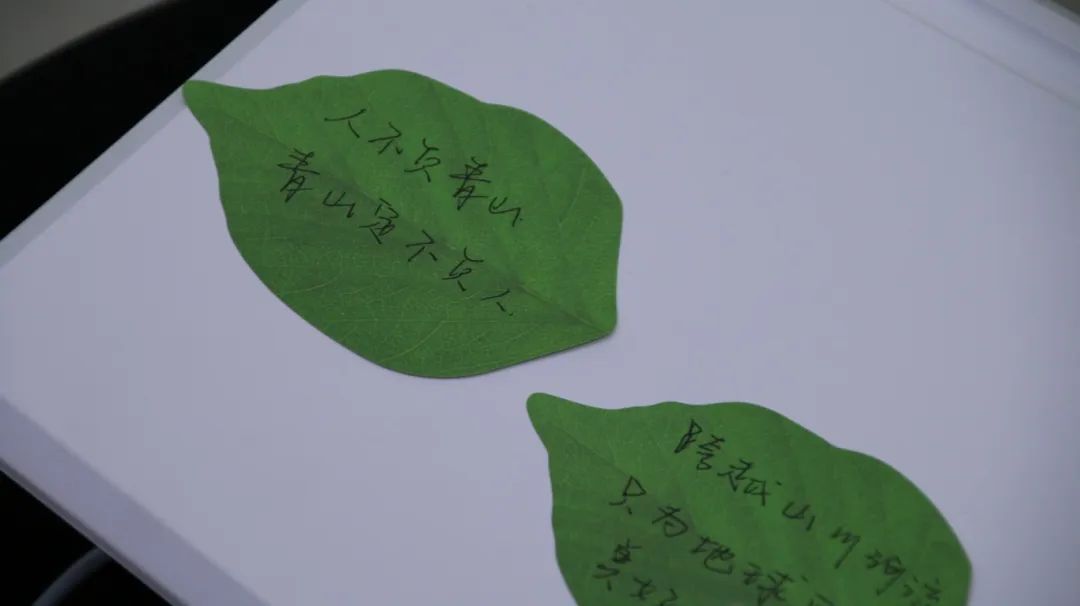 人不负青山
青山定不负人
跨越山川河流
只为地球
美好